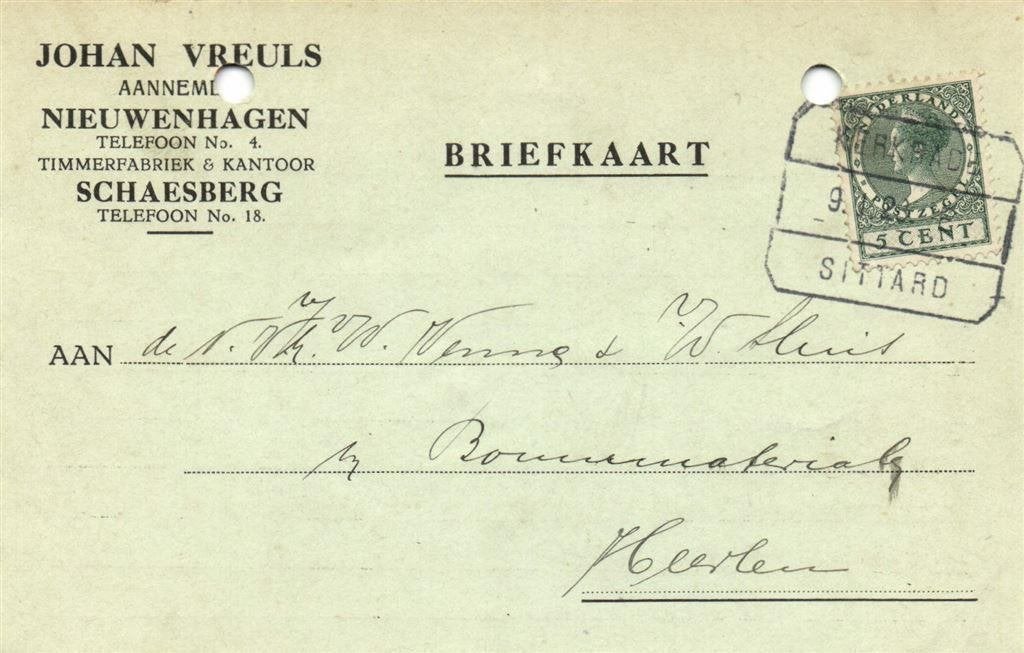 JOHAN VREULS
AANNEME
NIEUWENHAGEN
TELEFOON No. 4.
TIMMERFABRIEK & KANTOOR
SCHAESBERG
TELEFOON No. 18.
BRIEFKAART
NEDERLAND
POSTZEGEL
5 CENT
KERKRAD
9
SITTARD
AAN de N. V. W. Venne & W. Sluis
in Bouwmaterialen
Heerlen